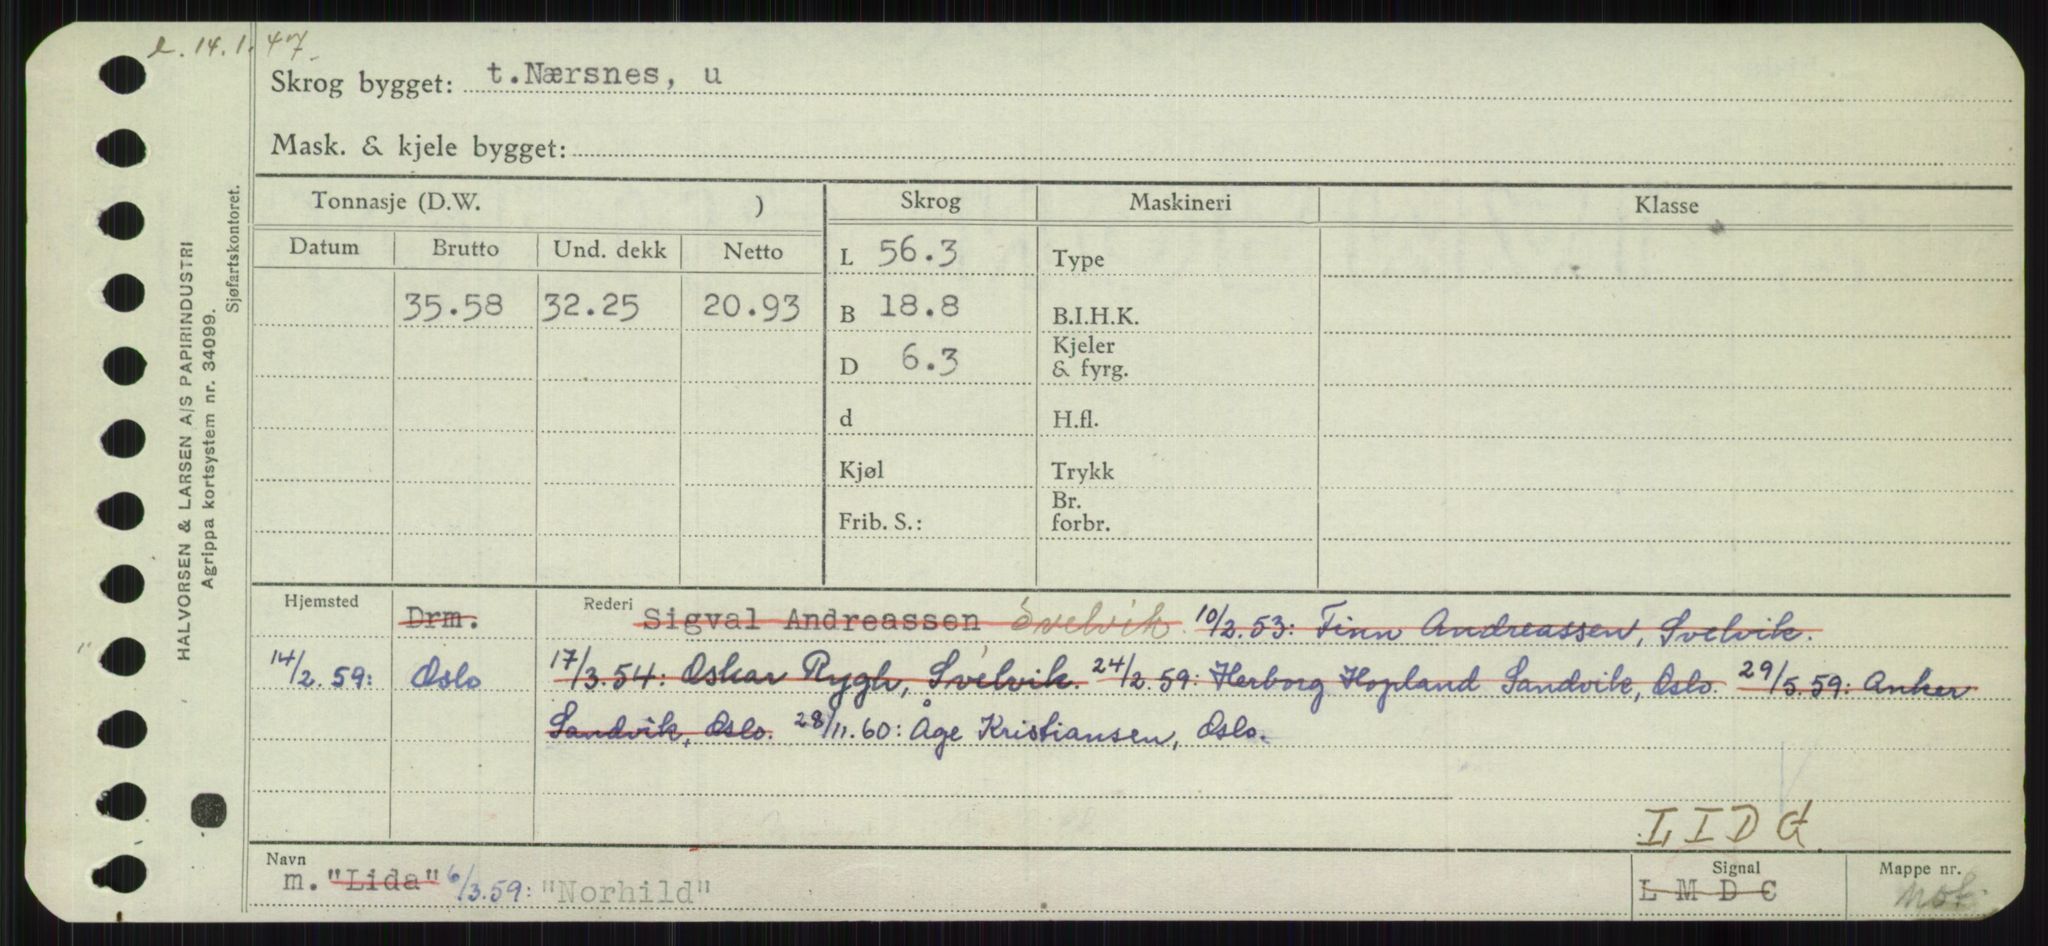 14.1.47
Skrog bygget: t.Nærsnes, u
Mask. & kjele bygget:
HALVORSEN & LARSEN A/S PAPIRINDUSTRI
Agrippa kortsystem nr. 34099.
Sjøfartskontoret.
Tonnasje (D.W. ) Skrog Maskineri Klasse
Datum Brutto Und. dekk Netto L 56.3 Type
35.58 32.25 20.93 B 18.8 B.I.H.K.
D 6.3 Kjeler & fyrg.
d H.fl.
Kjøl Trykk
Frib. S.: Br. forbr.
Hjemsted Drm. Rederi Sigval Andreassen Svelvik. 10/2.53: Finn Andreassen, Svelvik.
14/2.59: Oslo 17/3.54: Oskar Rygh, Svelvik. 24/2.59: Herborg Hopland Sandvik, Oslo. 29/5.59: Anker
Sandvik, Oslo. 28/11.60: Åge Kristiansen, Oslo.
LIDG
Navn Signal Mappe nr.
m. "Lida" 6/3.59: "Norhild" L M D C mot.